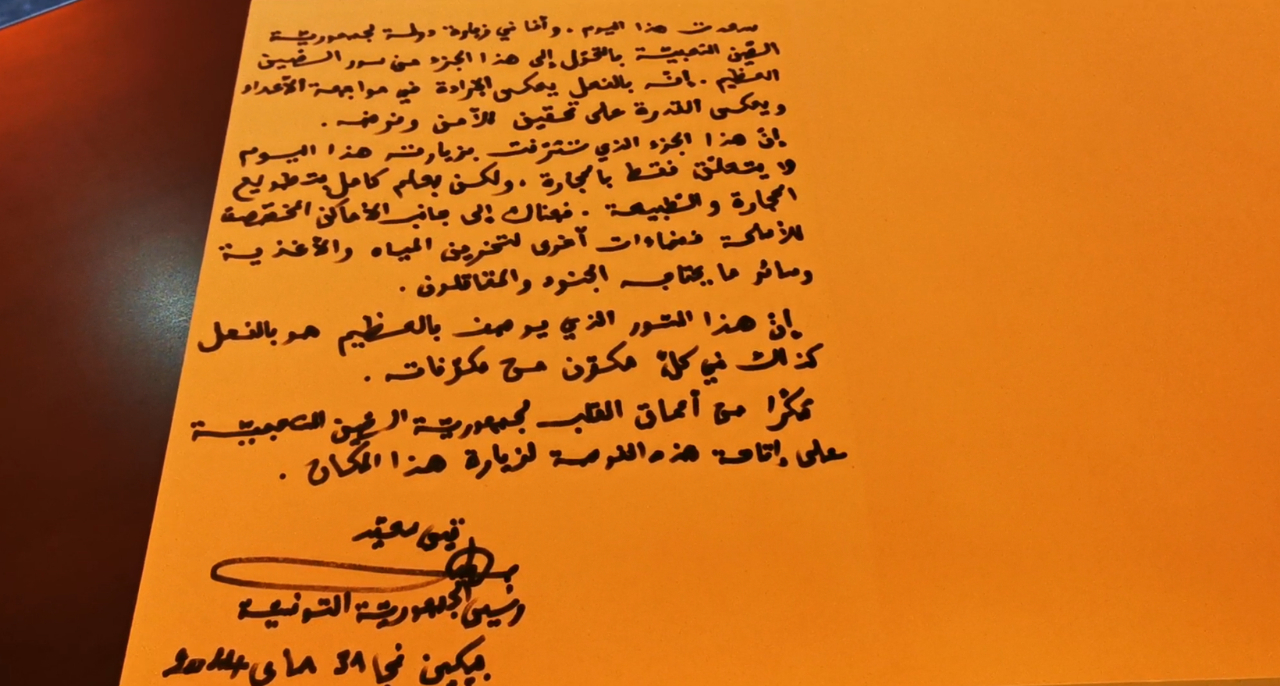 سعدت هذا اليوم، وأنا في زيارة دولة لجمهوريّة
الصّين الشعبيّة بالتحوّل إلى هذا الجزء من سور الصّين
العظيم. إنّه بالفعل يعكس الإرادة في مواجهة الأعداء
ويعكس القدرة على تحقيق الأمن وفرضه.
إنّ هذا الجزء الذي تشرّفت بزيارته هذا اليوم
لا يتعلّق فقط بالحجارة، ولكن بعلم كامل بتطويع
الحجارة والطّبيعة. فهناك إلى جانب الأماكن المخصّصة
للأسلحة فضاءات أخرى لتخزين المياه والأغذية
وسائر ما يحتاجه الجنود والمقاتلون.
إنّ هذا السّور الذي يوصف بالعظيم هو بالفعل
كذلك في كلّ مكوّن من مكوّناته.
شكرًا من أعماق القلب لجمهوريّة الصّين الشعبيّة
على إتاحة هذه الفرصة لزيارة هذا المكان.
قيس سعيّد
رئيس الجمهوريّة التونسيّة
بيكين في 31 ماي 2024